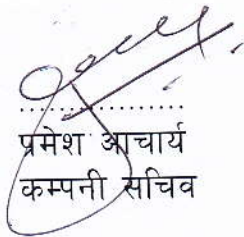 ....................
प्रमेश आचार्य
कम्पनी सचिव